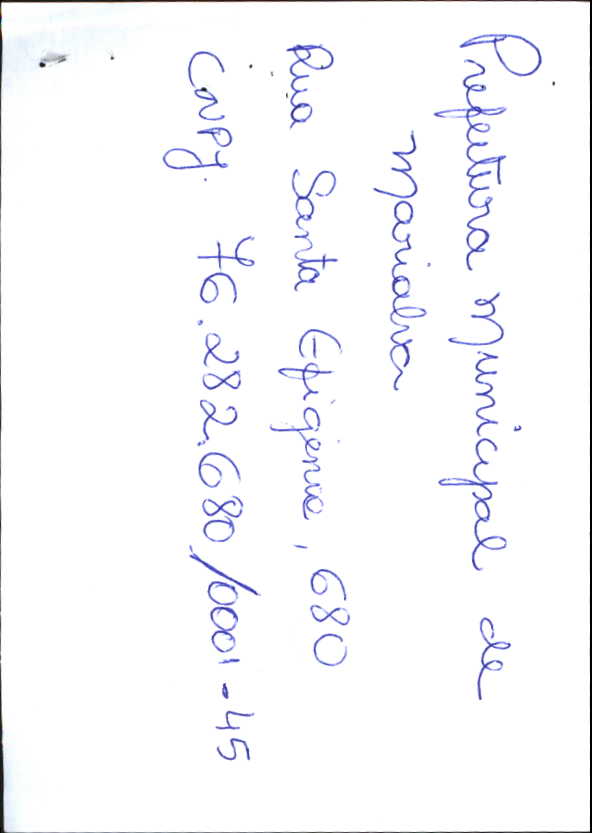 Prefeitura Municipal de
Marialva
Rua Santa Efigênia, 680
CNPJ. 76.282.680/0001-45